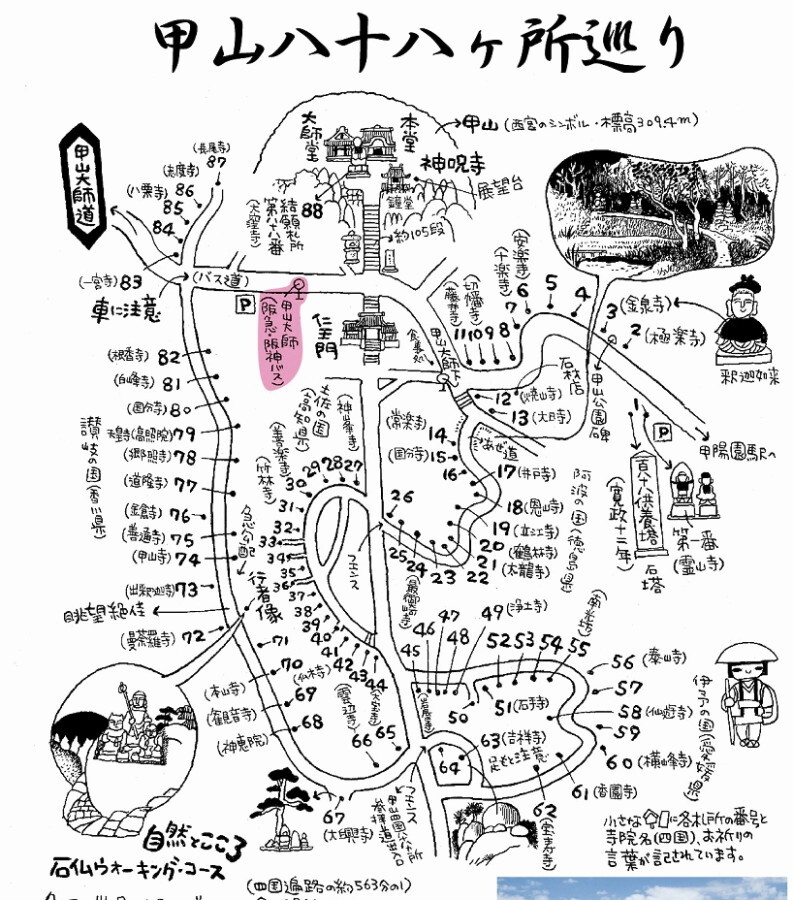 甲山八十八ヶ所巡り
甲山大師道
大師堂
本堂
甲山(西宮のシンボル・標高309.4m)
神呪寺
展望台
鐘堂
約105段
(長尾寺)
87
(志度寺)
86
(八栗寺)
85
84
88
結願札所
第八十八番
(大窪寺)
(一宮寺)83
車に注意
(バス道)
P
甲山大師
(阪急・阪神バス)
仁王門
食事処
甲山大師下
(藤井寺)
11
(切幡寺)
10
9
8
(十楽寺)
7
(安楽寺)
6
5
4
3(金泉寺)
2(極楽寺)
釈迦如来
石材店
甲山公園碑
1
P
甲陽園駅へ
百十八供養塔
(寛政十二年)
石塔
第一番
(霊山寺)
12(焼山寺)
13(大日寺)
あぜ道
(常楽寺)
14
(国分寺)15
16
17(井戸寺)
18(恩山寺)
19(立江寺)
20(鶴林寺)
21(太龍寺)
22
23
24
(最御崎寺)
25
26
阿波の国(徳島県)
(根香寺)82
(白峰寺)81
(国分寺)80
天皇寺(高照院)79
(郷照寺)78
(道隆寺)77
(金倉寺)76
(善通寺)75
(甲山寺)74
(出釈迦寺)73
眺望絶佳
(曼荼羅寺)72
讃岐の国(香川県)
急勾配
行者像
土佐の国
(高知県)
(神峯寺)
27
28
29
(善楽寺)
30
(竹林寺)
31
32
33
34
35
36
37
38
39
40
41
42
43
44
(大宝寺)
フェンス
45
(岩屋寺)
46
47
48
49(浄土寺)
50
51(石手寺)
52
53
54
55
(南光坊)
56(泰山寺)
57
58(仙遊寺)
59
60(横峰寺)
61(香園寺)
62
(宝寿寺)
63(吉祥寺)
足もと注意
64
伊予の国(愛媛県)
65
66
(雲辺寺)
67
(大興寺)
68
(神恵院)
69
(観音寺)
70
(本山寺)
71
フェンス
自然とこころ
石仏ウォーキング・コース
小さな に各札所の番号と
寺院名(四国)、お祈りの
言葉が記されています。
(四国遍路の約563分の1)